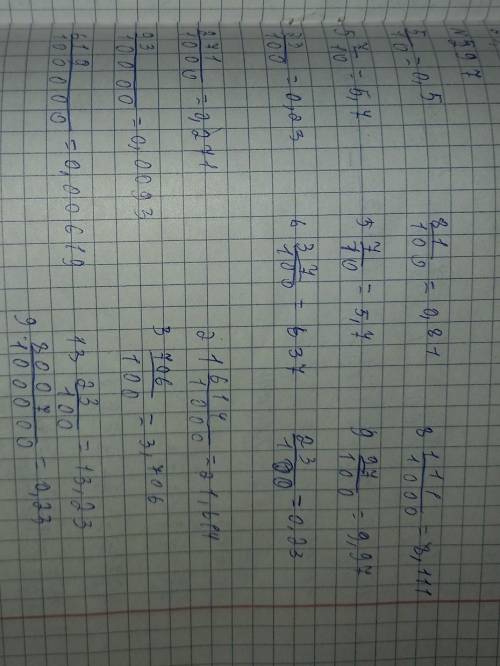 5/10 = 0,5   81/100 = 0,81   8 111/1000 = 8,111
5 7/10 = 5,7   5 7/10 = 5,7   9 97/100 = 9,97
23/100 = 0,23   6 37/100 = 637   23/100 = 0,23
271/1000 = 2,271   21 614/1000 = 21,614
93/10000 = 0,0093   3 706/100 = 3,706
619/100000 = 0,00619   13 23/100 = 13,23
9 8007/100000 = 0,23